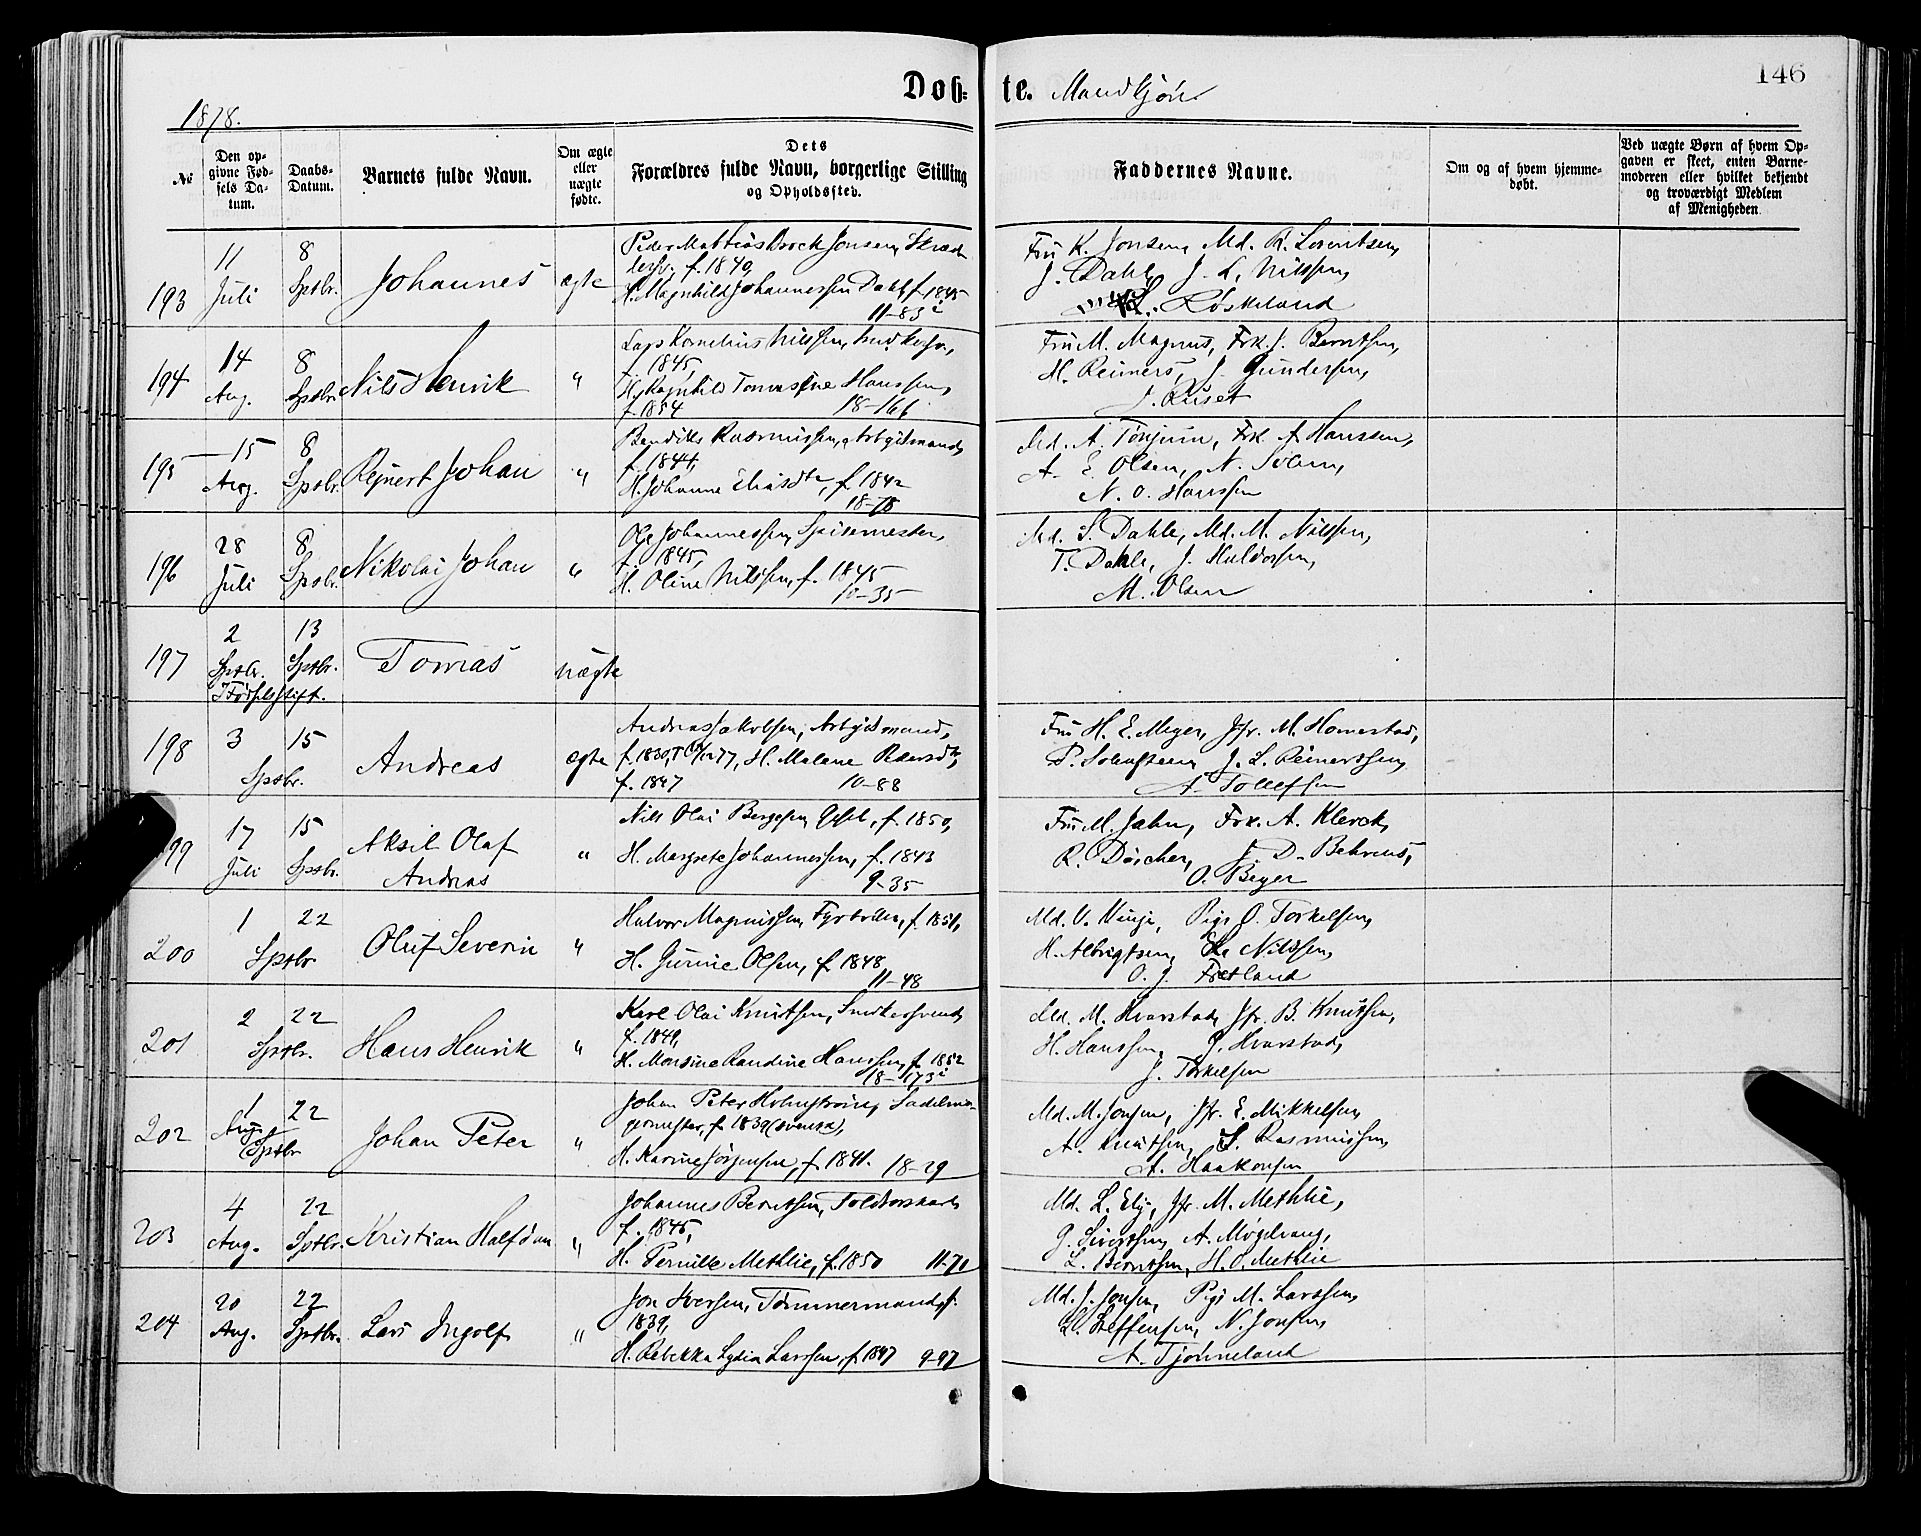 146
Døb= te. Mandkjøn
1878.
№
Den op-
givne Fød-
sels Da-
tum.
Daabs-
Datum.
Barnets fulde Navn.
Om ægte
eller
uægte
fødte.
Dets
Forældres fulde Navn, borgerlige Stilling
og Opholdssted.
Faddernes Navne.
Om og af hvem hjemme-
døbt.
Ved uægte Børn af hvem Op-
gaven er skeet, enten Barne-
moderen eller hvilket bekjendt
og troværdigt Medlem
af Menigheden.
193
11
Juli
8
Sptbr.
Johannes
ægte
Peder Mattias Brock Jonsen, Skræd
dersv. f. 1840,
H. Magnhild Johannessen Dahl f. 1845
11-83
Fru K. Jonsen, Md. R. Lorentsen,
J. Dahl, J. L. Nilssen,
L. Røskeland
194
14
Aug.
8
Sptbr.
Nils Henrik
"
Lars Kornelius Nilssen, Snedkersv.,
f. 1845,
H. Ragnhild Tomasine Hanssen,
f. 1854 18-166
Fru M. Magnus, Frk. J. Berntsen,
H. Reimers, J. Gundersen,
J. Ruset
195
15
Aug.
8
Sptbr.
Rejnert Johan
"
Bendik Rasmussen, Arbejdsmand,
f. 1844,
H. Johanne Eliasdtr, f. 1842
18-78
Md. A. Tønjum, Frk. A. Hanssen,
A. E. Olsen, N. Solem,
N. O. Hanssen
196
28
Juli
8
Sptbr.
Nikolai Johan
"
Ole Johannessen, Spisemester,
f. 1845,
H. Oline Nilssen, f. 1845
10-35
Md. S. Dahle, Md. M. Nilssen,
T. Dahle, J. Haldorsen,
M. Olsen
197
2
Sptbr.
I Fødselsstift.
13
Sptbr.
Tomas
uægte
198
3 15
Sptbr.
Andreas
ægte
Andreas Jakobsen, Arbejdsmand,
f. 1830, H. Malene Pedersdtr,
f. 1847 10-88
Fru H. E. Meyer, Jfr. M. Homestad,
P. Solufsteen, J. L. Reinertsen,
A. Tollefsen
199
17
Juli
15
Sptbr.
Aksel Olaf
Andreas
"
Nils Olai Bergesen, Gesel, f. 1850,
H. Margrete Johannessen, f. 1843
9-35
Fru M. Jahn, Frk. A. Klerck,
R. Döscher, J. D. Behrens,
O. Beyer
200
1 22
Sptbr.
Oluf Severin
"
Halvor Magnussen, Fyrbøder, f. 1851,
H. Gurine Olsen, f. 1848
11-48
Md. O. Vinje, Pige O. Torkelsen,
H. Albrigtsen, E. Nilssen,
O. J. Fretland
201
2 22
Sptbr.
Hans Henrik
"
Karl Olai Knutsen, Snedkersvend,
f. 1849,
H. Monsine Randine Hanssen, f. 1852
18-173
Md. M. Hvarstad, Jfr. B. Knutsen,
H. Hanssen, J. Hvarstad,
J. Torkelsen
202
1
Aug.
Sptbr
22
Johan Peter
"
Johan Peter Holmstrøm, Sadelma-
germester, f. 1839 (svensk),
H. Karine Jörgensen, f. 1841. 18-29
Md. M. Jonsen, Jfr. E. Mikkelsen,
A. Knutsen, S. Rasmussen,
A. Haakonsen
203
4
Aug.
22
Sptbr.
Kristian Halfdan
"
Johannes Berntsen, Toldtorskark,
f. 1845,
H. Pernille Methlie, f. 1850 11-70
Md. L. Ely, Jfr. M. Methlie,
G. Sivertsen, A. Møgelvang,
L. Berntsen, H. O. Methlie
204
20
Aug.
22
Sptbr.
Lars Ingolf
"
Jon Iversen, Tømmermand, f.
1839,
H. Rebekka Lydia Larssen, f. 1847 9-97
Md. J. Jonsen, Pige M. Larssen,
L. Steffensen, N. Jonsen,
A. Tjønneland